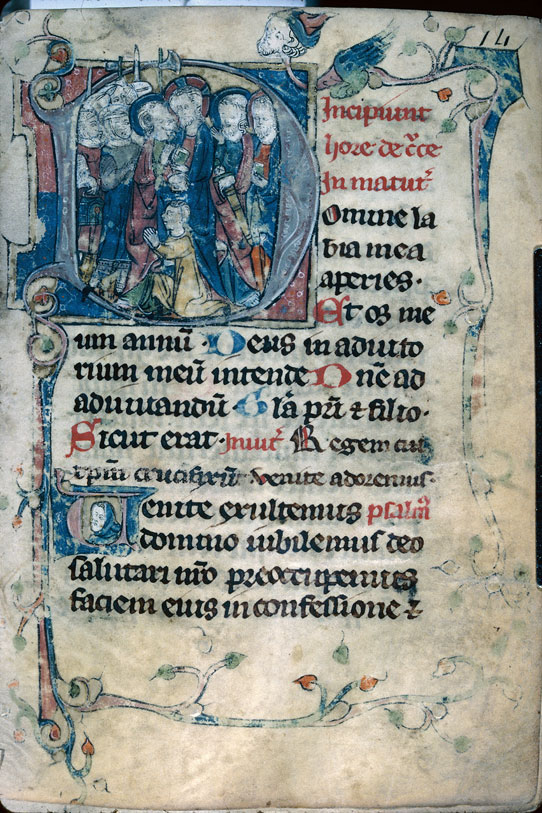 14
Incipiunt
hore de c̄ce
In matut᷑
Domine la
bia mea
aperies.
Et os me
um annū. Deus in adiuto
rium meū intende Dñe ad
adiuuandū Glā pr̄i ⁊ filio.
Sicut erat. Inuit᷑ Regem cru
xp̄m crucifixū. venite adoremus.
Uenite exultemus psalm̄
domino iubilemus deo
salutari nr̄o preoccupemus
faciem eius in confessione ⁊